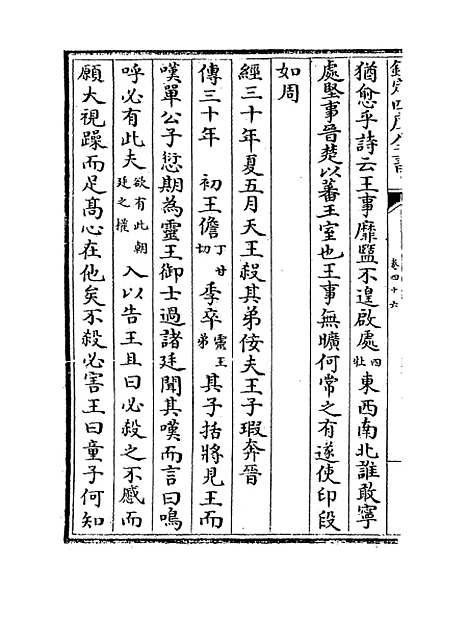 欽定四庫全書
卷四十六
猶愈乎詩云王事靡盬不遑啟處四牡東西南北誰敢寧
處堅事晉楚以蕃王室也王事無曠何常之有遂使印段
如周
經三十年夏五月天王殺其弟佞夫王子瑕奔晉
傳三十年 初王儋丁甘切季卒靈王弟其子括將見王而
嘆單公子愆期為靈王御士過諸廷聞其嘆而言曰嗚
呼必有此夫欲有此朝廷之權 入以告王且曰必殺之不慼而
願大視躁而足髙心在他矣不殺必害王曰童子何知